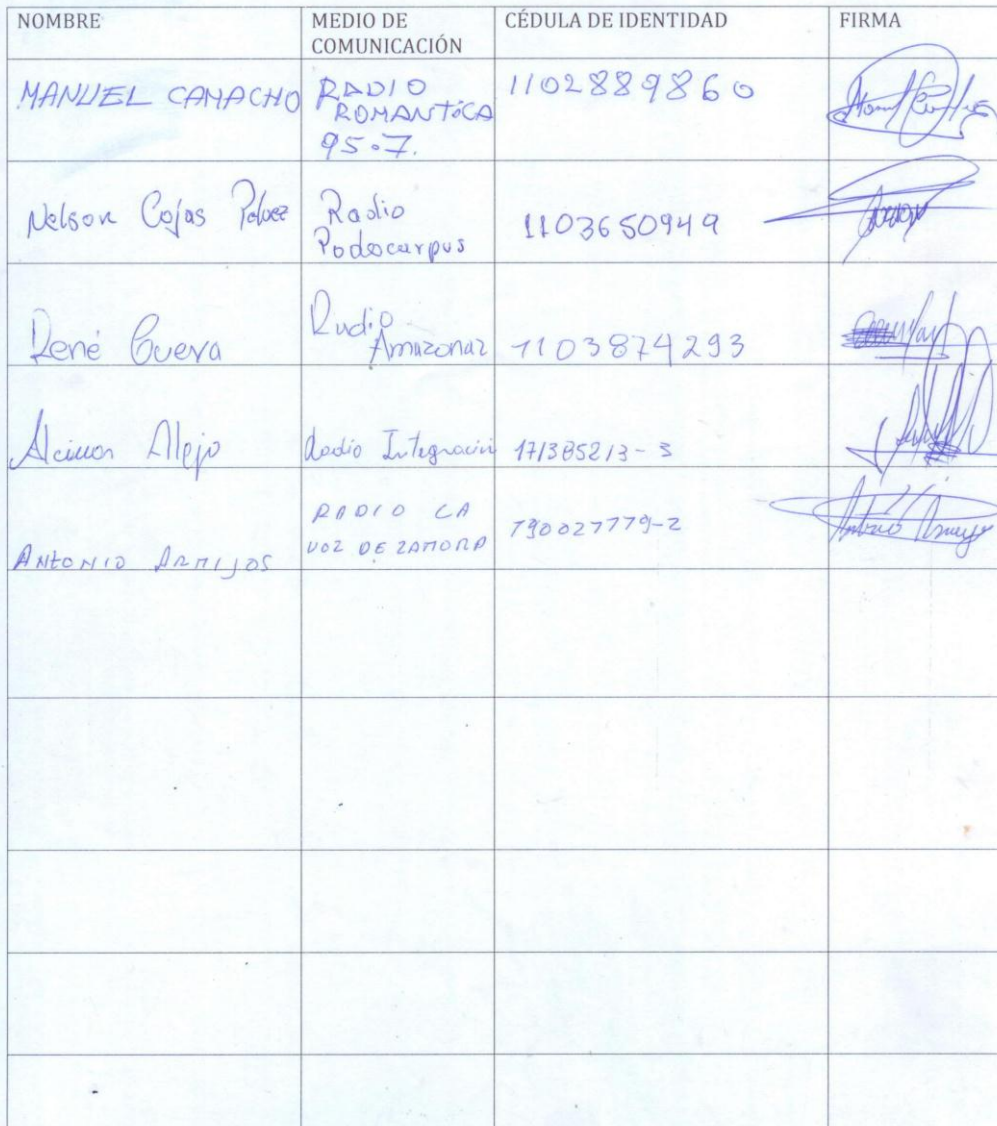 NOMBRE
MEDIO DE
COMUNICACIÓN
CÉDULA DE IDENTIDAD
FIRMA
MANUEL CAMACHO
RADIO
ROMANTICA
95.7.
1102889860
Nelson Cojas
Radio
Podocarpus
1103650949
René Cueva
Radio
Amazonaz
1103874293
Alejo
Radio Integración
171385213-3
ANTONIO ARMIJOS
RADIO LA
VOZ DE ZAMORA
190027779-2